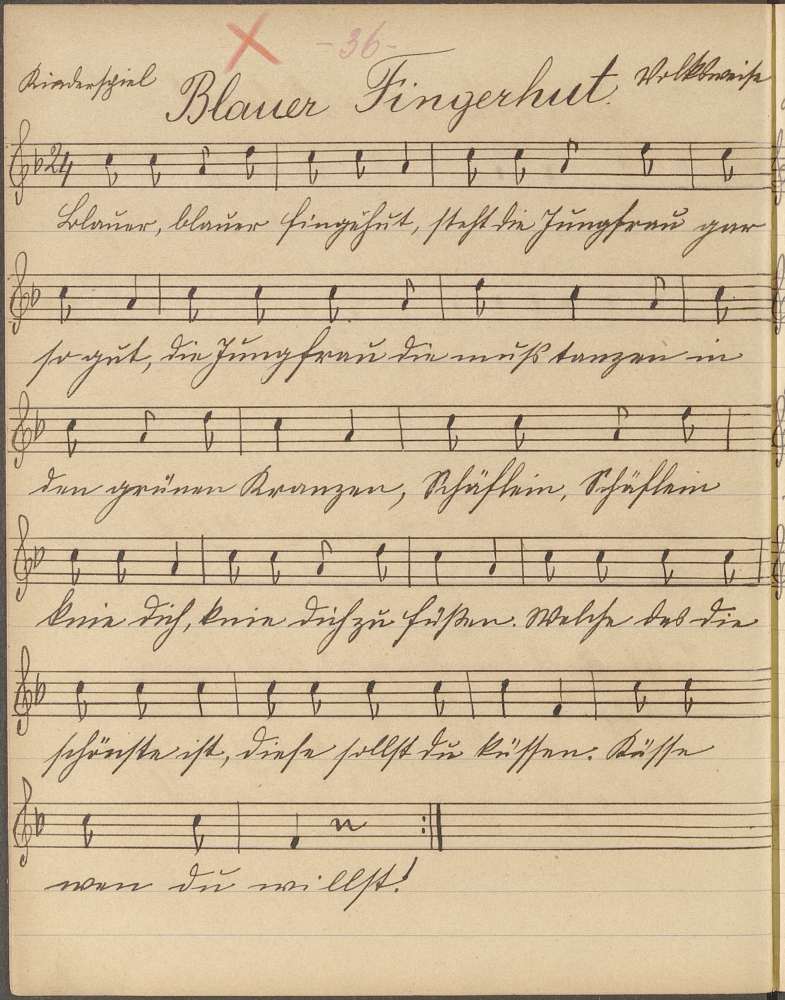 - 36 -
Kinderspiel Blauer Fingerhut. Volksweise
24
Blauer, blauer Fingerhut, steht die Jungfrau gar
so gut, die Jungfrau die muß tanzen in
den grünen Kranzen, Schäflein, Schäflein
knie dich, knie dich zu Füßen. Welche das die
schönste ist, diese sollst du küssen: Küsse
wen du willst!